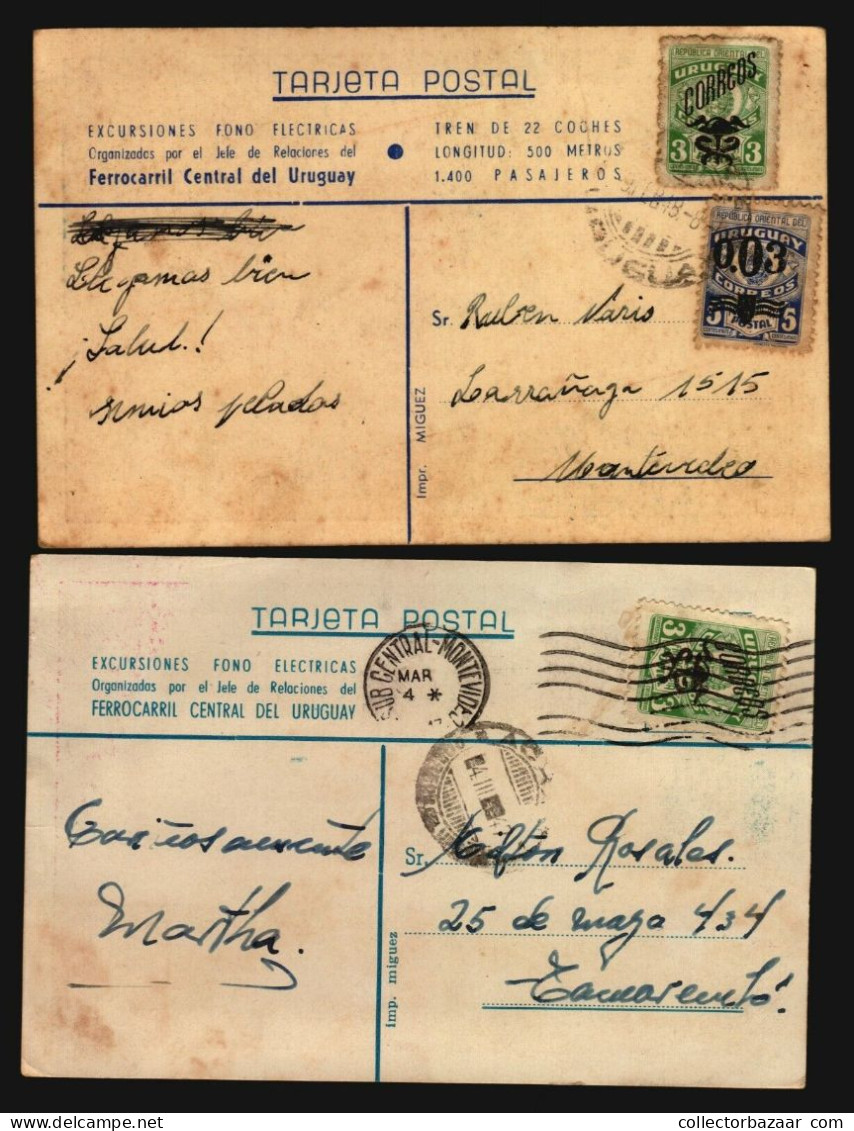 TARJETA POSTAL
EXCURSIONES FONO ELECTRICAS
Organizadas por el Jefe de Relaciones del
Ferrocarril Central del Uruguay
TREN DE 22 COCHES
LONGITUD: 500 METROS
1.400 PASAJEROS
REPUBLICA ORIENTAL DEL
URUGUAY
CORREOS
3 3
REPUBLICA ORIENTAL DEL
URUGUAY
0.03
CORREOS
5 POSTAL 5
Llegamos bien
¡Salud!
pelados
Sr. Ruben Varis
Larrañaga 1515
Montevideo
Impr. MIGUEZ
TARJETA POSTAL
EXCURSIONES FONO ELECTRICAS
Organizadas por el Jefe de Relaciones del
FERROCARRIL CENTRAL DEL URUGUAY
SUB CENTRAL-MONTEVIDEO
MAR
4 *
CORREOS
3 3
4 III
Cariñosamente
Martha.
Sr. Milton Rosales.
25 de mayo 434
imp. miguez
collectorbazaar.com